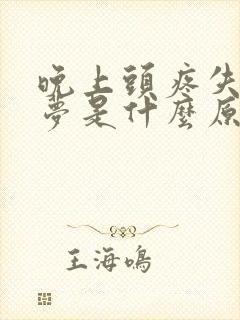 晚上頭疼失
夢是什麼原
王海鳴